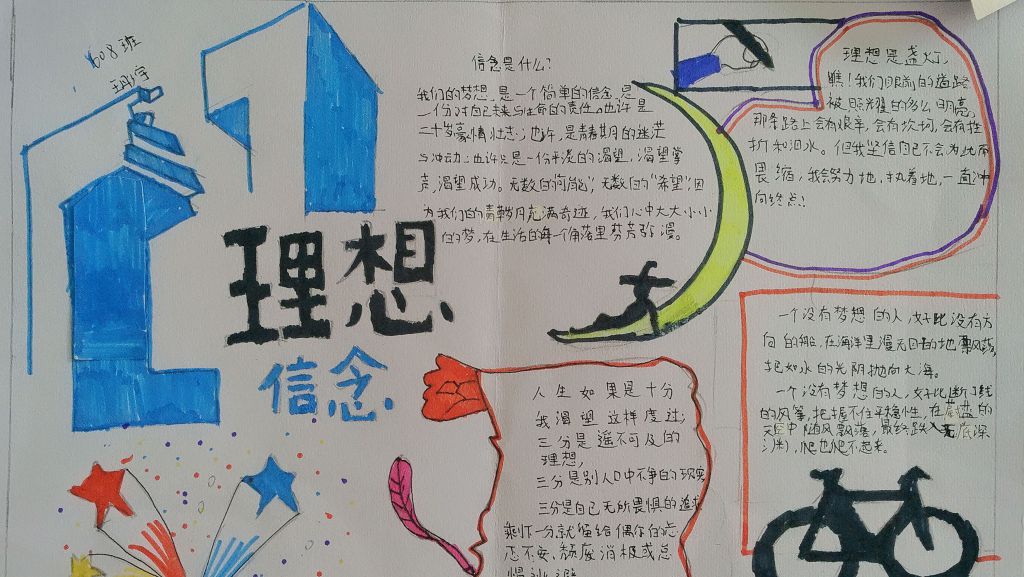 608班
理想
信念
信念是什么?
我们的梦想,是一个简单的信念,是
一份对自己未来与生命的责任。也许是
二十岁豪情壮志;也许,是青春期的迷茫
与冲动;也许只是一份平淡的渴望,渴望掌
声,渴望成功。无数的"可能",无数的"希望",因
为我们的青春岁月充满奇迹,我们心中大大小小
的梦,在生活的每一个角落里芬芳弥漫。
理想是盏灯,
瞧!我们眼前的道路
被照耀的多么明亮,
那条路上会有艰辛,会有坎坷,会有挫
折和泪水。但我坚信自己不会为此而
畏缩,我会努力地,执着地,一直冲
向终点!
一个没有梦想的人,好比没有方
向的船,在海洋里漫无目的地飘荡,
把如水的光阴抛向大海。
一个没有梦想的人,好比断了线
的风筝,把握不住平稳性,在蔚蓝的
天空中随风飘落,最终跌入无底深
渊,爬也爬不起来。
人生如果是十分
我渴望这样度过;
三分是遥不可及的
理想,
三分是别人口中不争的现实
三分是自己无所畏惧的追求
剩下一分就留给偶尔的忐
忑不安、颓废消极或总